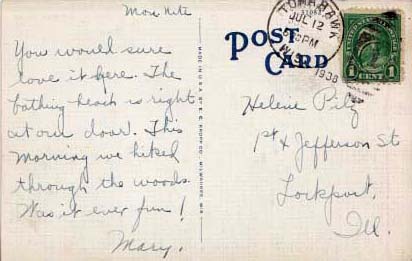 Mon Nite
You would sure
love it here. The
bathing beach is right
at our door. This
morning we hiked
through the woods.
Was it ever fun!
Mary.
MADE IN U.S.A. BY E. C. KROPP CO. MILWAUKEE, WIS.
TOMAHAWK
JUL 12
PM
WIS.
1938
POST
CARD
1 CENT 1
Helene Pilz
1st & Jefferson St
Lockport,
Ill.